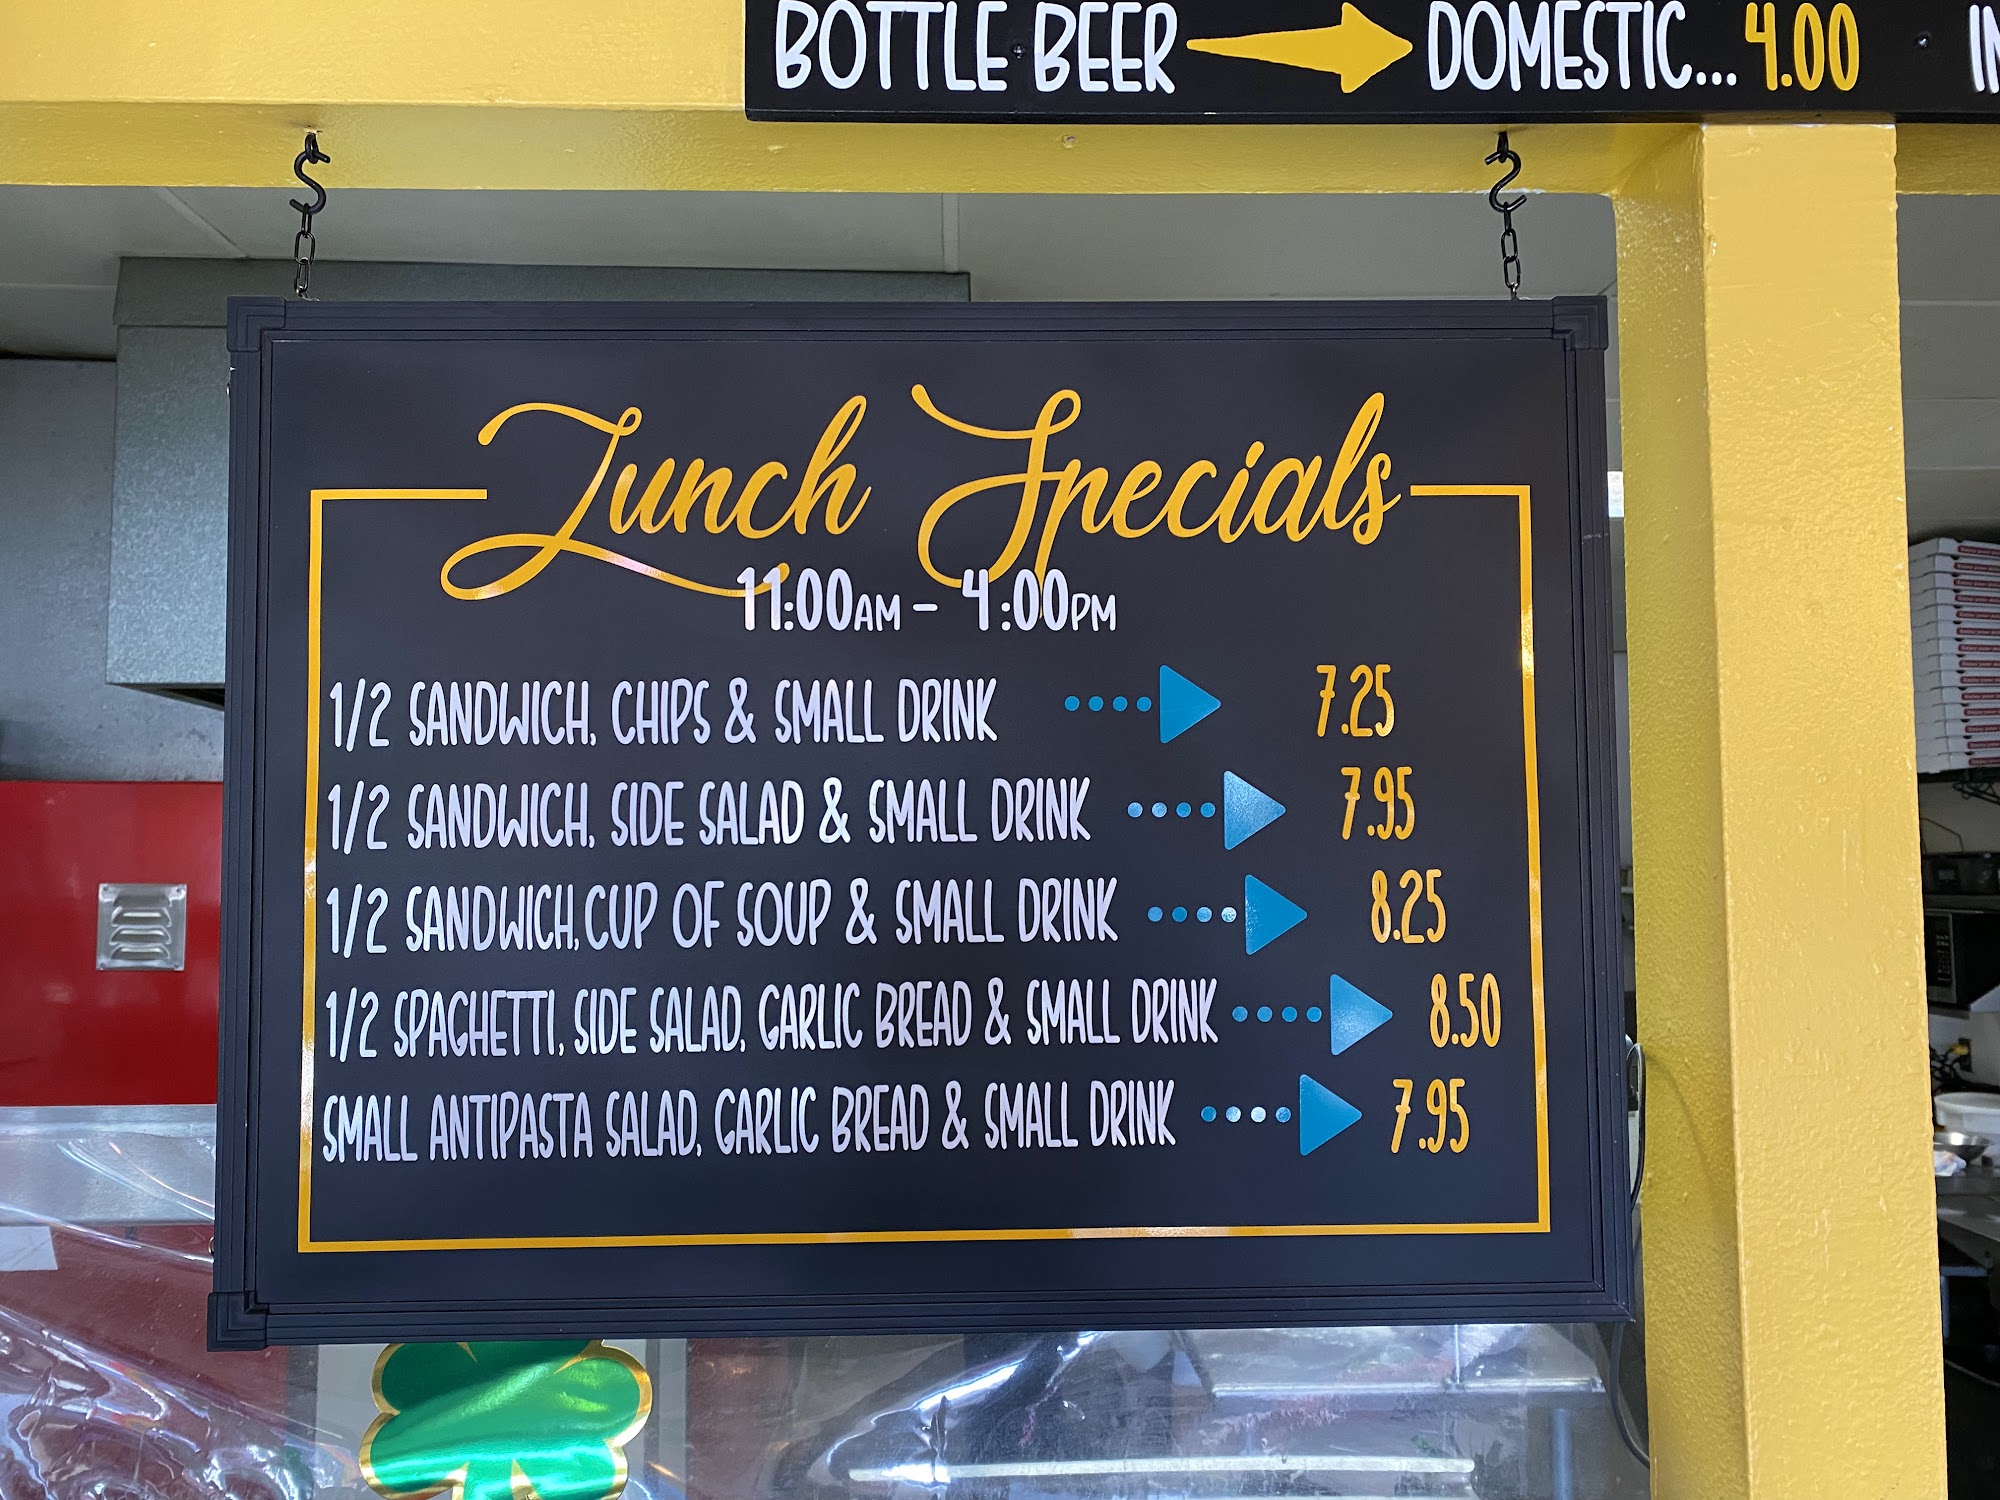 BOTTLE BEER DOMESTIC... 4.00
Lunch Specials
11:00AM - 4:00PM
1/2 SANDWICH, CHIPS & SMALL DRINK 7.25
1/2 SANDWICH, SIDE SALAD & SMALL DRINK 7.95
1/2 SANDWICH, CUP OF SOUP & SMALL DRINK 8.25
1/2 SPAGHETTI, SIDE SALAD, GARLIC BREAD & SMALL DRINK 8.50
SMALL ANTIPASTA SALAD, GARLIC BREAD & SMALL DRINK 7.95